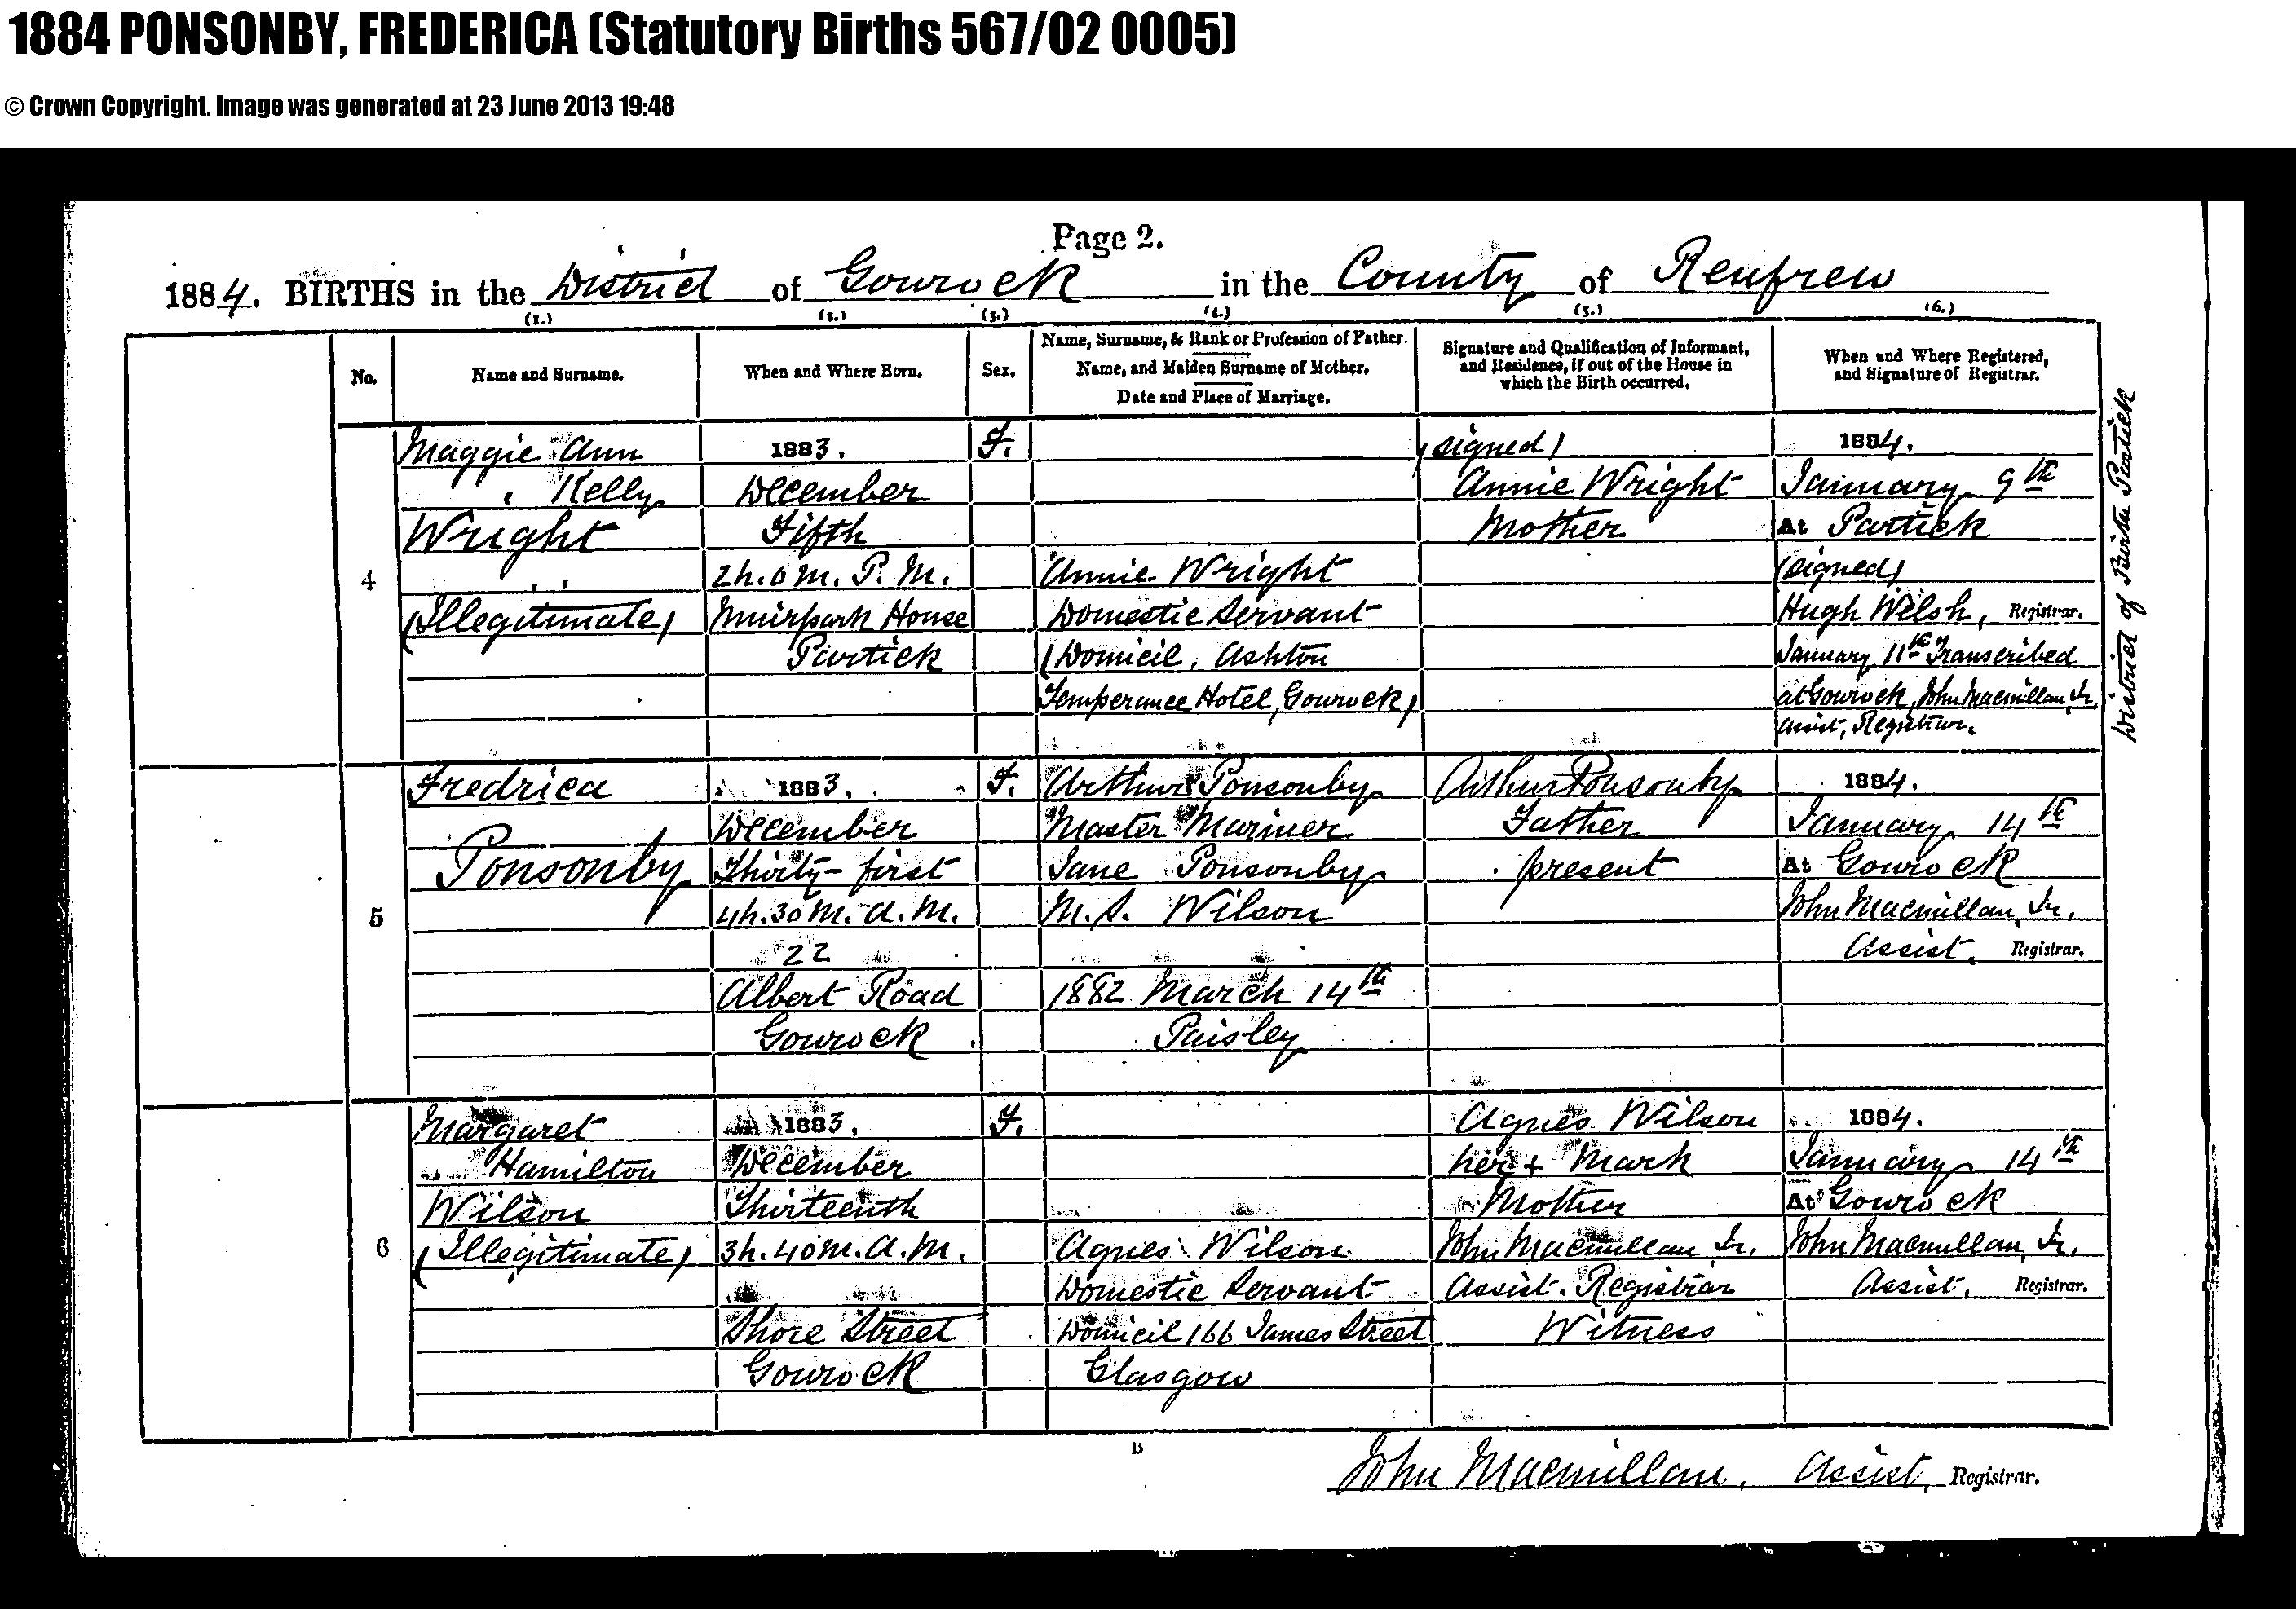 1884 PONSONBY, FREDERICA (Statutory Births 567/02 0005)
© Crown Copyright. Image was generated at 23 June 2013 19:48
Page 2.
1884. BIRTHS in the District of Gourock in the County of Renfrew
(1.) (2.) (3.) (4.) (5.) (6.)
No.
Name and Surname.
When and Where Born.
Sex.
Name, Surname, & Rank or Profession of Father.
Name, and Maiden Surname of Mother.
Date and Place of Marriage.
Signature and Qualification of Informant,
and Residence, if out of the House in
which the Birth occurred.
When and Where Registered,
and Signature of Registrar.
4
Maggie Ann
Kelly
Wright
(Illegitimate)
1883.
December
Fifth
2h. 0m. P. M.
Muirpark House
Partick
F.
Annie Wright
Domestic Servant
(Domicil, Ashton
Temperance Hotel, Gourock)
(signed)
Annie Wright
Mother
1884.
January 9th
At Partick
(signed)
Hugh Welsh, Registrar.
January 11th Transcribed
at Gourock, John Macmillan, Jr.
Assist. Registrar.
District of Birth Partick
5
Fredrica
Ponsonby
1883.
December
Thirty-first
4h. 30 M. A. M.
22
Albert Road
Gourock
F.
Arthur Ponsonby
Master Mariner
Jane Ponsonby
M.S. Wilson
1882 March 14th
Paisley
Arthur Ponsonby
Father
present
1884.
January 14th
At Gourock
John Macmillan, Jr.
Assist. Registrar.
6
Margaret
Hamilton
Wilson
(Illegitimate)
1883.
December
Thirteenth
3h. 40m. A. M.
Shore Street
Gourock
F.
Agnes Wilson
Domestic Servant
Domicil 166 James Street
Glasgow
Agnes Wilson
her + Mark
Mother
John Macmillan, Jr.
Assist. Registrar
Witness
1884.
January 14th
At Gourock
John Macmillan, Jr.
Assist. Registrar.
B
John Macmillan, Assist, Registrar.